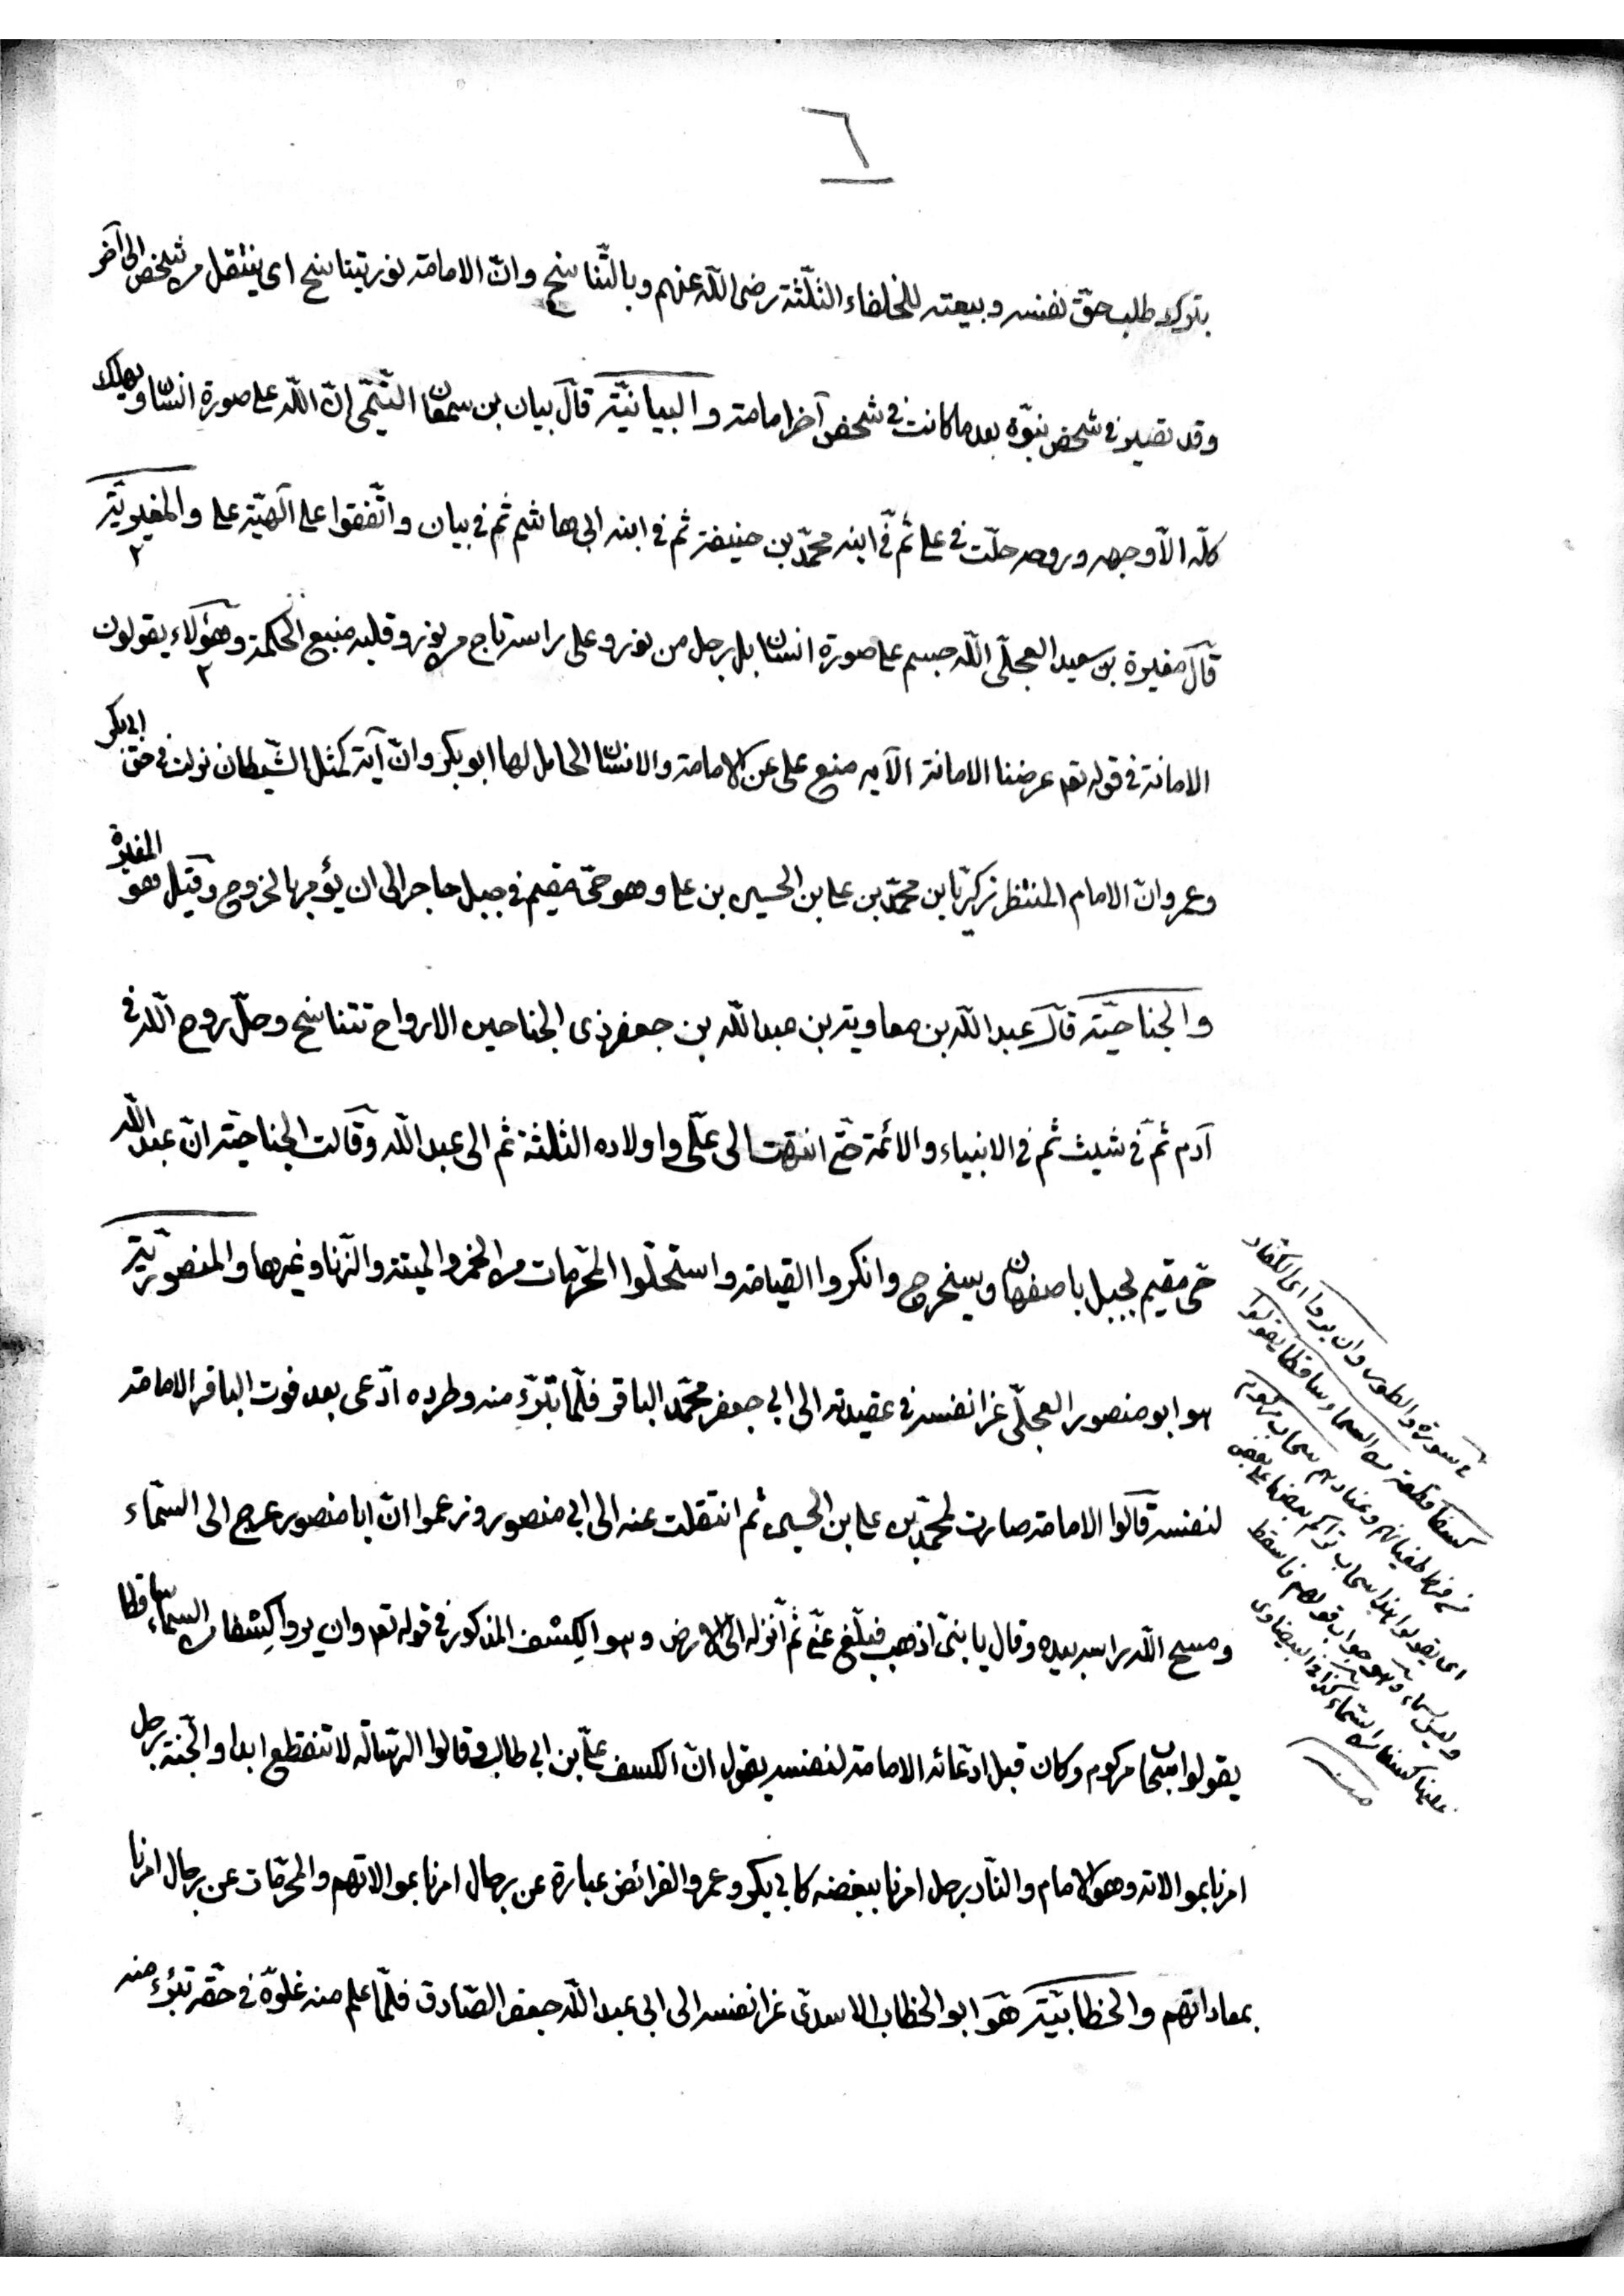 ٦
بترك طلب حقّ نفسه وبيعته للخلفاء الثلثة رضى اللّه عنهم وبالتّناسخ وانّ الامامة نور يتناسخ اى ينتقل من شخص الى آخر
وقد تصير فى شخص نبوّة بعد ما كانت فى شخص آخر امامة والبيانيّة قال بيان بن سمعان التّيمّى انّ اللّه على صورة انسان ويهلك
كلّه الّا وجهه وروحه حلّت فى على ثمّ فى ابنه محمّد بن حنيفة ثم فى ابنه ابى هاشم ثم فى بيان واتّفقوا على آلهيّة على والمغيريّة
قال مغيرة بن سعيد العجلّى اللّه جسم على صورة انسان بل رجل من نور وعلى راسه تاج من نور وقلبه منبع الحكمة وهؤلاء يقولون
الامانة فى قوله تعم عرضنا الامانة الآيه منع على عن الامامة والانسان الحامل لها ابو بكر وانّ آية كمثل الشّيطان نزلت فى حقّ ابى بكر
وعمر وانّ الامام المنتظر زكريّا بن محمّد بن على بن الحسين بن على وهو حىّ مقيم فى جبل حاجر الى ان يؤمر بالخروج وقيل هو المغيرة
والجناحيّة قال عبد اللّه بن معاوية بن عبد اللّه بن جعفر ذى الجناحين الارواح تتناسخ وحلّ روح اللّه فى
آدم ثمّ فى شيث ثم فى الانبياء والائمة حتّى انتهت الى علّى واولاده الثلثة ثم الى عبد اللّه وقالت الجناحيّة انّ عبد اللّه
حىّ مقيم بجبل باصفهان وسيخرج وانكروا القيامة واستحلّوا المحّرمات من الخمر والميتة والزّنا وغيرها والمنصوريّة
هو ابو منصور العجلّى عزا نفسه فى عقيدته الى ابى جعفر محمّد الباقر فلمّا تبرّء منه وطرده ادّعى بعد فوت الباقر الامامة
لنفسه قالوا الامامة صارت لمحمّد بن على بن الحسين ثم انتقلت عنه الى ابى منصور وزعموا انّ ابا منصور عرج الى السّماء
ومسح اللّه راسه بيده وقال يا بنىّ اذهب فبلّغ عنّى ثمّ انزله الى الارض وهو الكِسْف المذكور فى قوله تعم وان يروا كِسْفا من السماء ساقطا
يقولوا سحاب مركوم وكان قبل ادّعائه الامامة لنفسه يقول انّ الكسف علّى بن ابى طالب وقالوا الرّسالة لا تنقطع ابدا والجّنة رجل
امرنا بموالاته وهو الامام والنّار رجل امرنا ببغضه كابى بكر وعمر والفرائض عبارة عن رجال امرنا بموالاتهم والمحرّمات عن رجال امرنا
بمعاداتهم والخطابيّة هو ابو الخطاب الاسدّى عزا نفسه الى ابى عبد اللّه جعفر الصّادق فلمّا علم منه غلوّه فى حقّه تبرّء منه
فى سورة والطور وان يروا اى الكفار
كسفا قطعة من السماء ساقطا يقولوا
من فرط طغيانهم وعنادهم سحاب مركوم
اى يقولوا هذا سحاب تراكم بعضها على بعض
وليس سماء وهو جواب قولهم فاسقط
علينا كسفا من السّماء كذا فى البيضاوى
منه